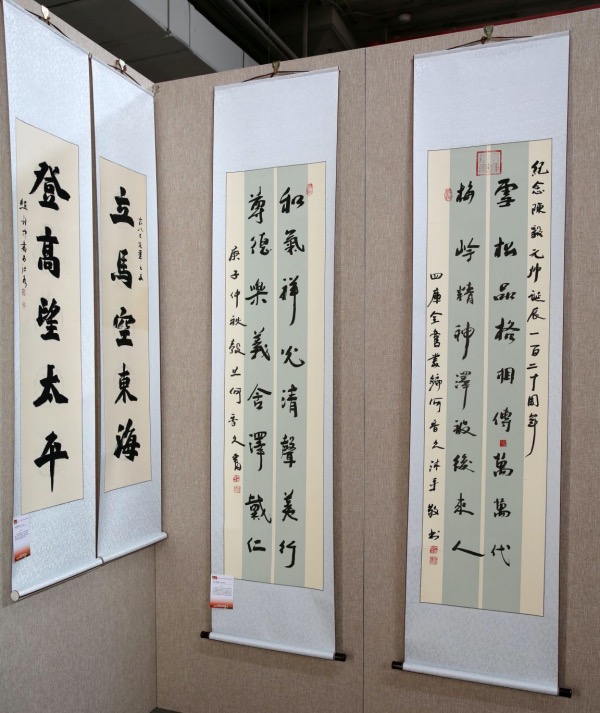 紀念陳毅元帅誕辰一百二十周年
雪松品格相傳萬萬代
梅岭精神澤被後來人
四庫全書叢編何香久沐手敬书
和氣祥光清聲美行
尊德樂義含澤戴仁
庚子仲秋穀旦何香久書
立馬空東海
登高望太平